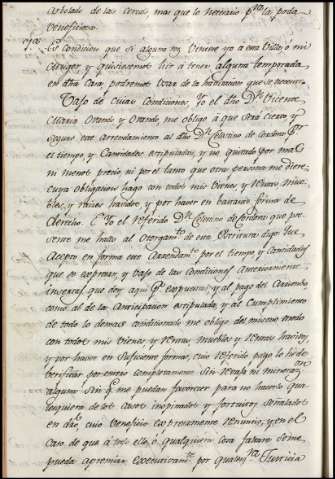 Arbolado de las cercas, mas que lo necesario pª la poda
beneficiosa.
Es condicion que si alguna vez viniese yo a esta Villa, ò mi
Muger, y quisiesemos hir à tener alguna temporada
en dha Casa, podremos usar de la habitacion que se necesite.
Vajo de cuias Condiciones, Yo el dho Dn. Vicente
Maria Orando y Orando, me obligo à que serà cierto y
seguro este arrendamiento al dho Dn. Celestino de Cordero por
el tiempo y Cantidades estipuladas, y no quitado por mas
ni menos precio ni por el tanto que otra persona me diere,
cuya obligacion hago con todos mis Vienes y Rentas mue-
bles, y raices havidos y por haver en bastante forma de
derecho. E Yo el referido Dn. Celestino de Cordero que pre-
sente me hallo al Otorgamto de esta Escritura digo: Que
Acepto en forma este Arrendamto por el tiempo y Cantidades
que se expresan, y bajo de las Condiciones Anteriormente
insertas que doy aqui pr expresas; y al pago del Arriendo
como al de la Anticipacion estipulada, y al Cumplimiento
de todo lo demas condicionado me obligo del mismo modo
con todos mis vienes y rentas, muebles y raices havidos
y por haver en suficiente forma, cuio referido pago lo he de
berificar por entero completamente sin revaja ni minoracion
alguna sin qe me puedan favorecer para no hacerlo qua-
lesquiera de los casos inopinados y fortuitos señalados
en dro, cuio beneficio expresamente renuncio, y en el
Caso de que à todo ello, ò qualquiera cosa faltare se me
pueda apremiar executivamte por qualqra Justicia